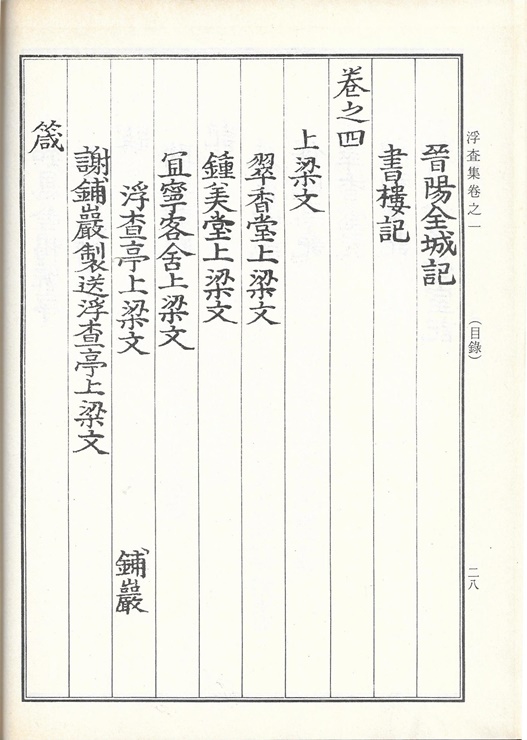 浮査集卷之一
(目錄)
二八
晉陽全城記
書樓記
卷之四
上梁文
翠香堂上梁文
鍾美堂上梁文
宜寧客舍上梁文
浮査亭上梁文 鋪巖
謝鋪巖製送浮査亭上梁文
箴